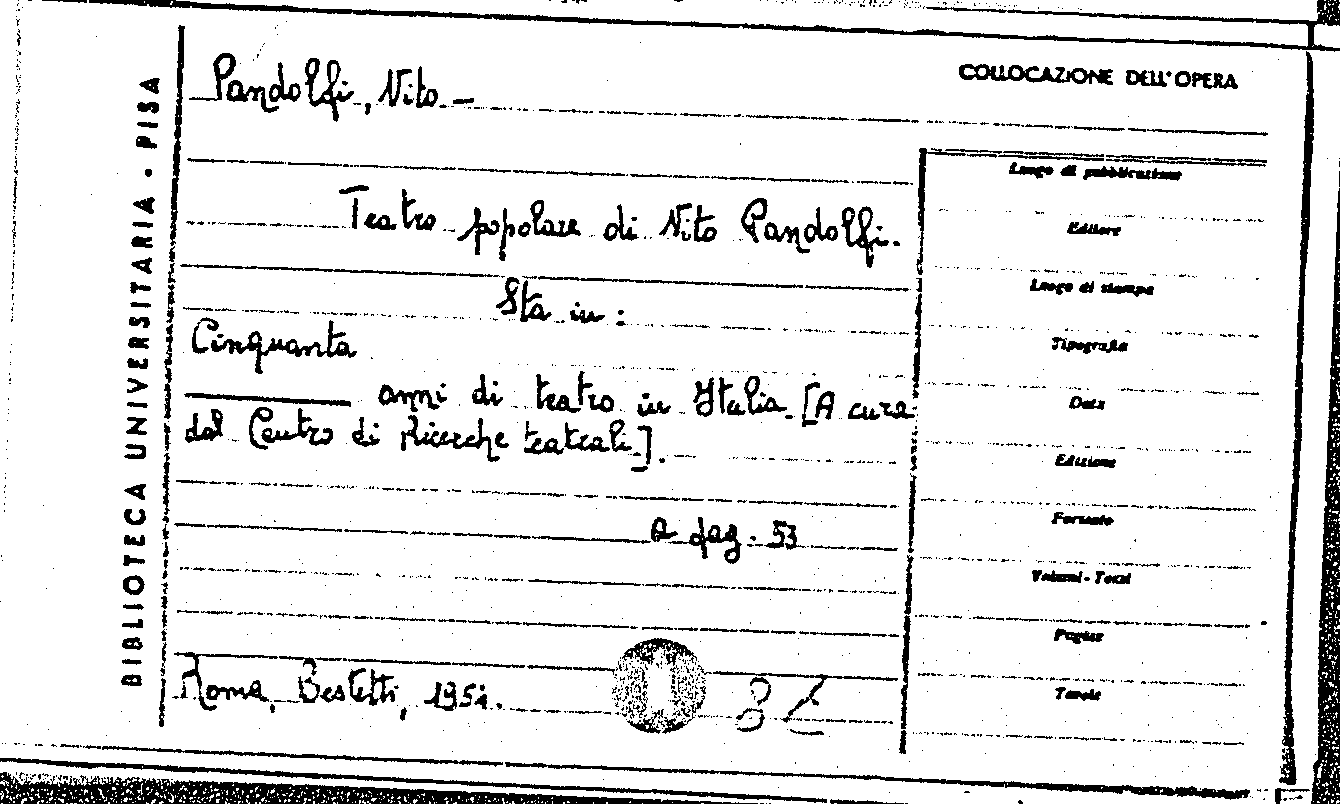 BIBLIOTECA UNIVERSITARIA - PISA
Pandolfi, Vito -
COLLOCAZIONE DELL'OPERA
Teatro popolare di Vito Pandolfi.
Sta in :
Cinquanta
anni di teatro in Italia. [A cura
dal Centro di Ricerche teatrali].
a pag. 53
Roma, Bestetti,
Luogo di pubblicazione
Editore
Luogo di stampa
Tipografia
Data
Edizione
Formato
Volumi - Tomi
Pagine
Tavole